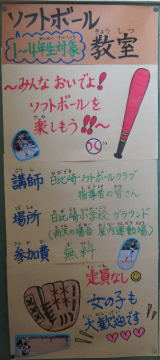 ソフトボール
1~4年生対象 教室
～みんなおいでよ!
ソフトボールを
楽しもう!!～
講師 日比崎ソフトボールクラブ
指導者の皆さん
場所 日比崎小学校 グラウンド
(雨天の場合 屋内運動場)
参加費 無料
定員なし
女の子も
大歓迎です